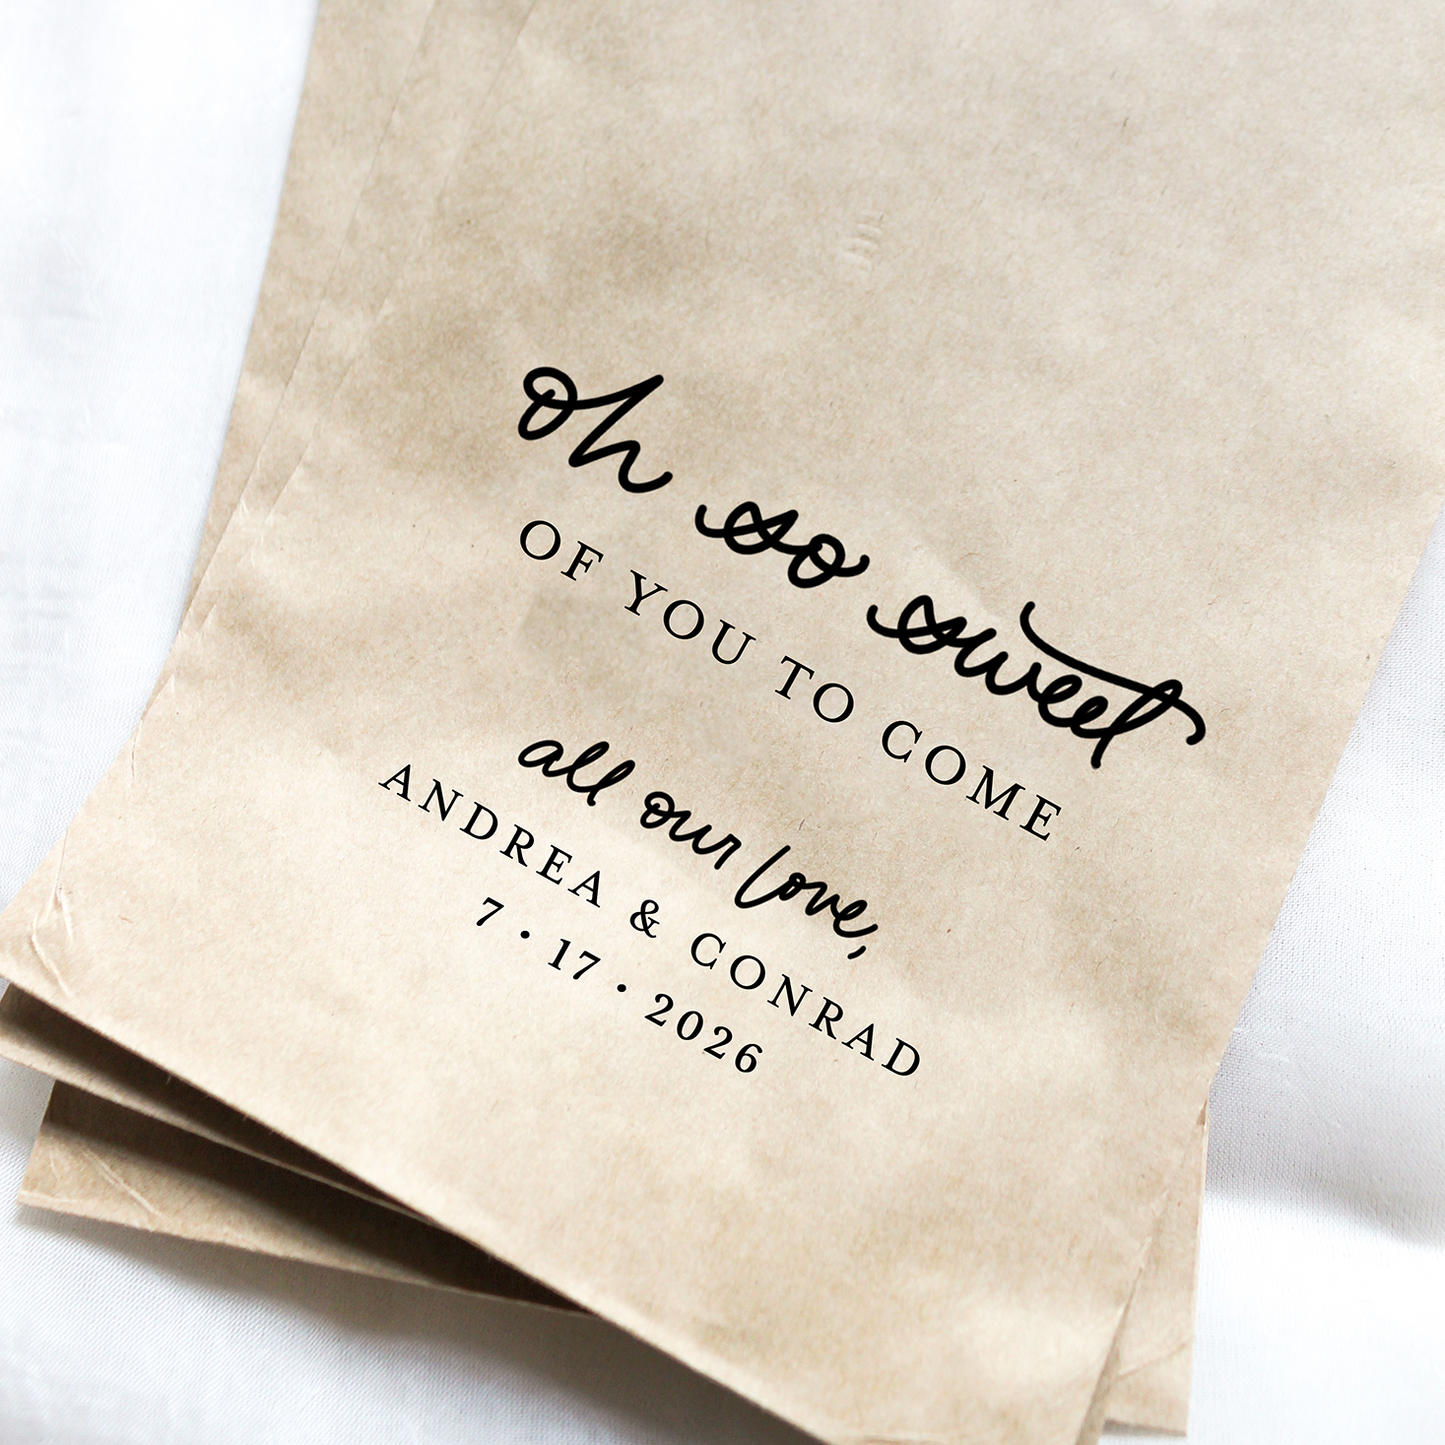 oh so sweet
OF YOU TO COME
all our love,
ANDREA & CONRAD
7 • 17 • 2026